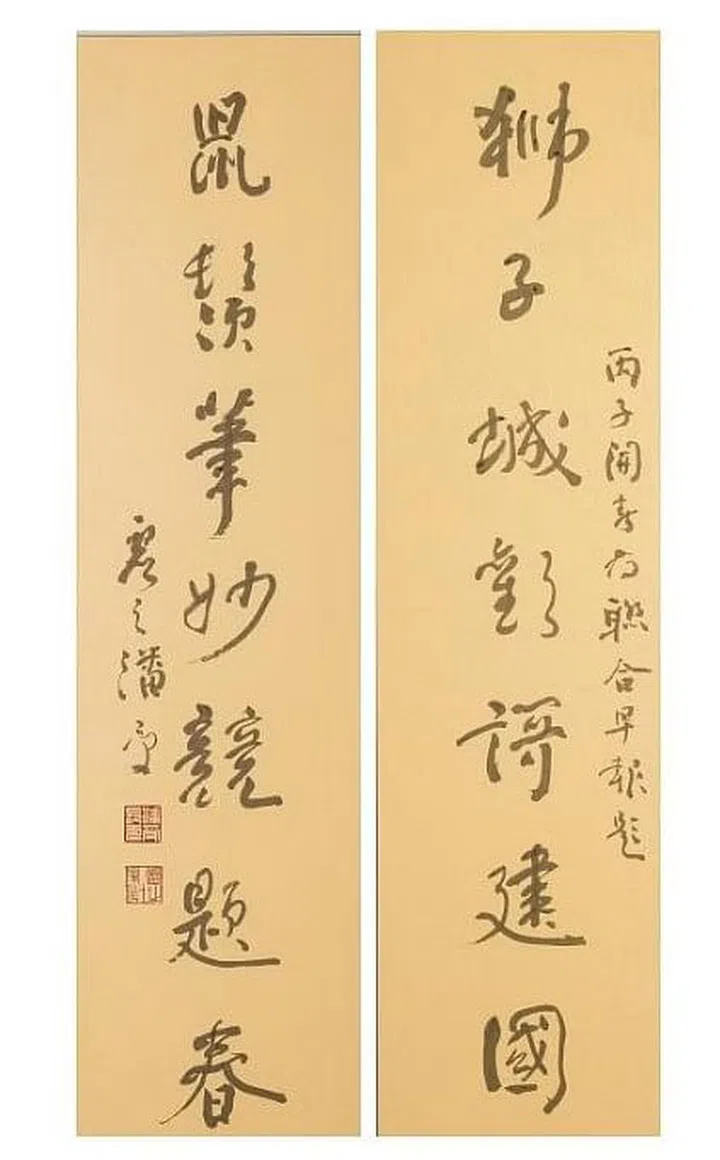 丙子開春為聯合早報題
獅子城歡謌建國
鼠鬚筆妙競題春
虛之潘受